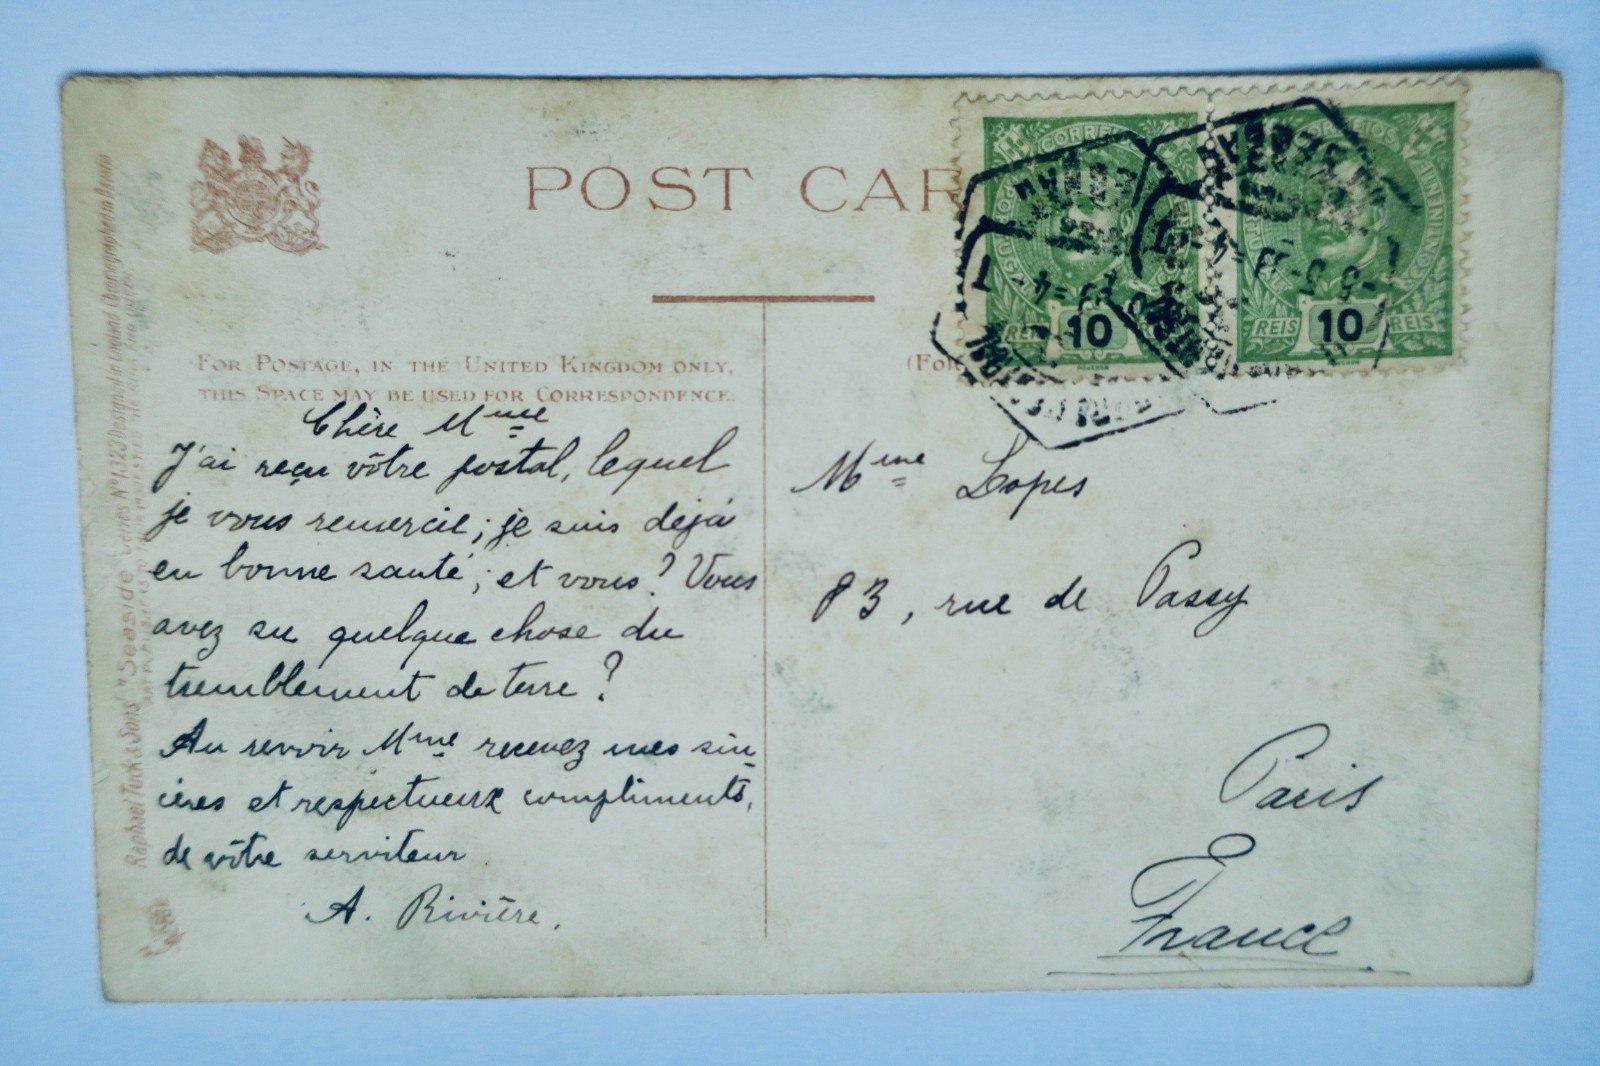 POST CAR
FOR POSTAGE, IN THE UNITED KINGDOM ONLY,
THIS SPACE MAY BE USED FOR CORRESPONDENCE.
(FOR
Raphael Tuck & Sons' "Seaside" Series No 1323 Designed in England Chromographed in Bavaria
Chère Mme
J'ai reçu vôtre postal, lequel
je vous remercie; je suis déjà
en bonne santé; et vous? Vous
avez su quelque chose du
tremblement de terre?
Au revoir Mme recevez mes sin-
cières et respectueux compliments,
de vôtre serviteur
A. Rivière.
CORREIOS
PORTUGAL
REIS 10
CORREIOS
PORTUGAL
CONTINENTE
REIS 10 REIS
Mme Lopes
83, rue de Passy
Paris
France